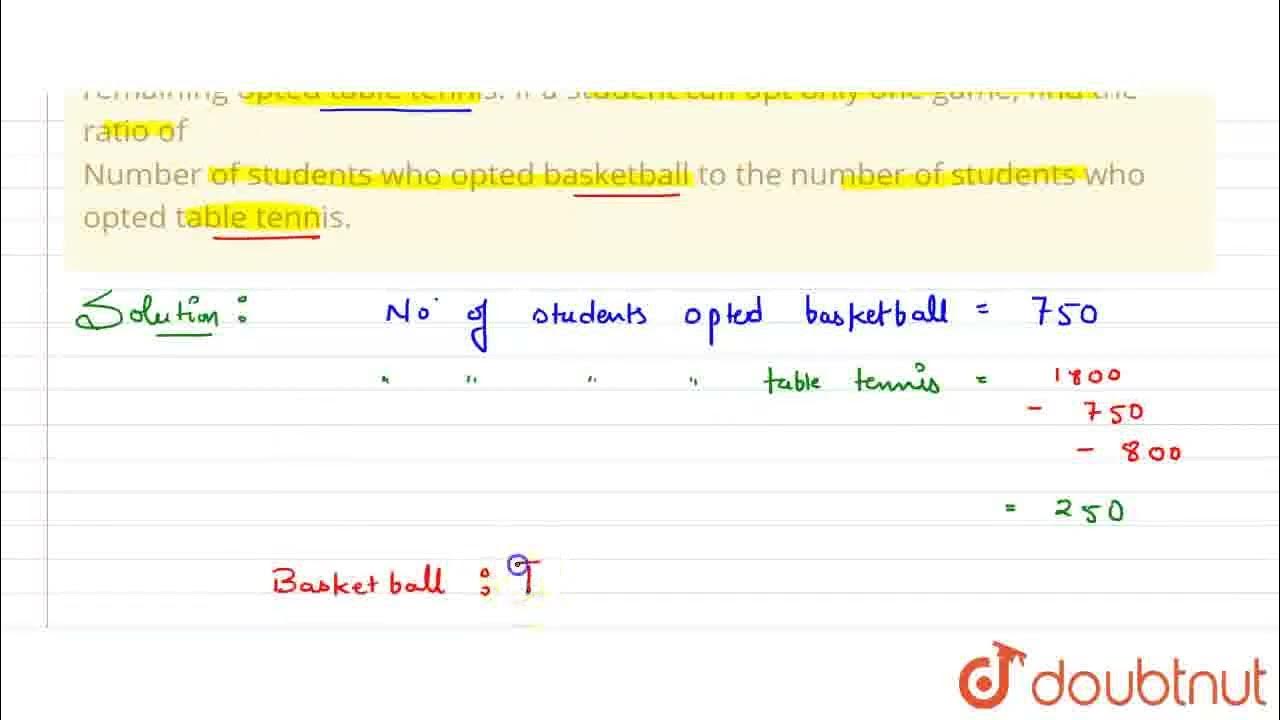 remaining opted table tennis. If a student can opt only one game, find the
ratio of
Number of students who opted basketball to the number of students who
opted table tennis.
Solution : No of students opted basketball = 750
" " " " table tennis = 1800
- 750
- 800
= 250
Basketball : T
doubtnut